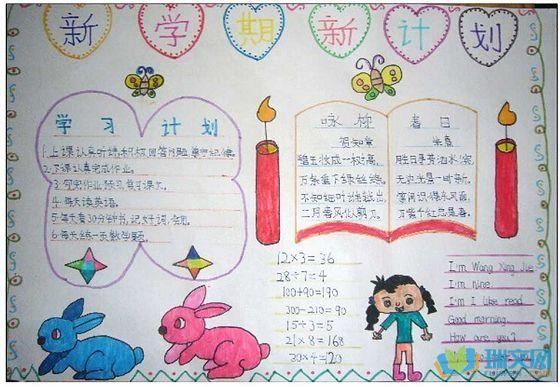 新学期新计划
学习计划
1.上课认真听讲,积极回答问题,遵守纪律。
2.下课认真完成作业。
3.写完作业预习
4.每天读英语。
5.每天看30分钟书,记好词,
6.每天练一页数学题。
咏柳
贺知章
碧玉妆成一树高,
万条垂下绿丝绦。
不知细叶谁裁出,
二月春风似剪刀。
春日
朱熹
胜日寻芳泗水滨,
无边光景一时新。
等闲识得东风面,
万紫千红总是春。
12×3=36
28÷7=4
100+90=190
300-210=90
15÷3=5
21×8=168
30×4=120
I'm Wang Xing Jue
I'm nine.
I'm I like read
Good morning.
How are you?